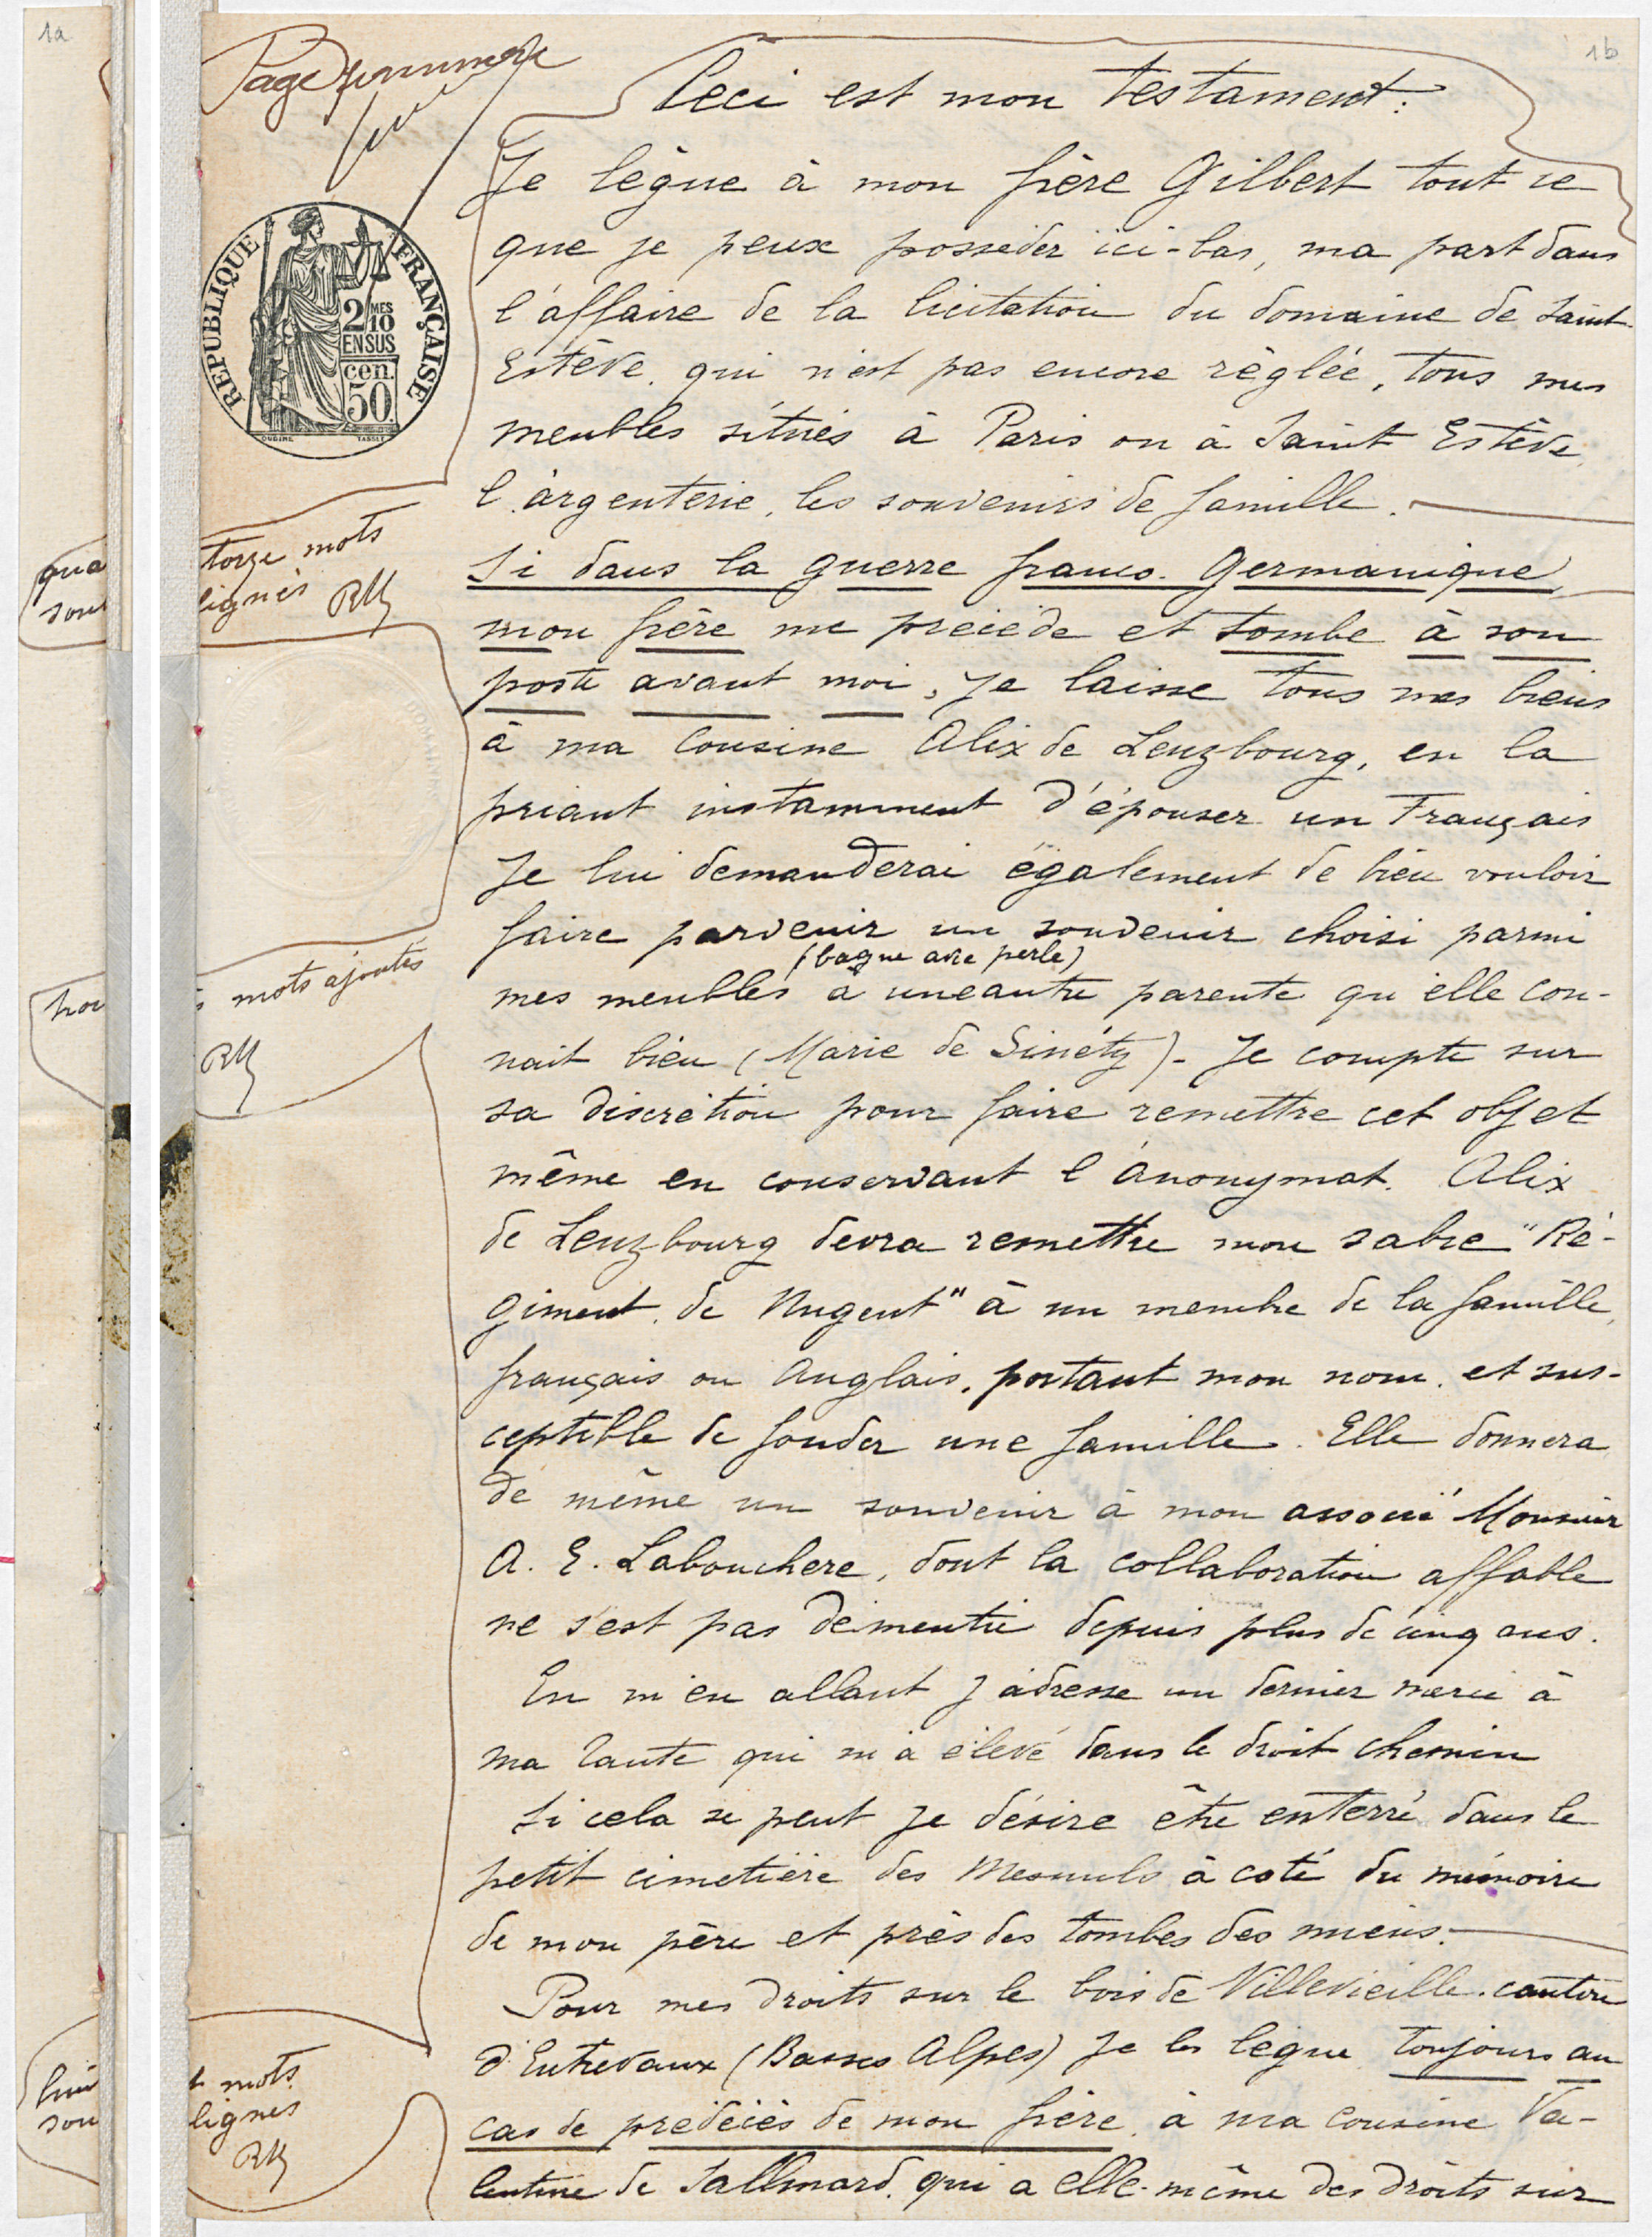 1a
1b
Page première
Ceci est mon testament.
Je lègue à mon frère Gilbert tout ce
que je peux posséder ici-bas, ma part dans
l'affaire de la licitation du domaine de Saint-
Estève, qui n'est pas encore règlée, tous mes
meubles situés à Paris ou à Saint Estève,
l'argenterie, les souvenirs de famille.
Si dans la guerre franco-Germanique
mon frère me précède et tombe à son
poste avant moi, je laisse tous mes biens
à ma cousine Alix de Lenzbourg, en la
priant instamment d'épouser un Français
Je lui demanderai également de bien vouloir
faire parvenir un souvenir choisi parmi
(bague avec perle)
mes meubles à une autre parente qu'elle con-
nait bien (Marie de Sinéty). Je compte sur
sa discrétion pour faire remettre cet objet
même en conservant l'anonymat. Alix
de Lenzbourg devra remettre mon sabre "Ré-
giment de Nugent" à un membre de la famille,
français ou Anglais, portant mon nom, et sus-
ceptible de fonder une famille. Elle donnera
de même un souvenir à mon associé Monsieur
A. E. Labouchere, dont la collaboration affable
ne s'est pas démentie depuis plus de cinq ans.
En m'en allant j'adresse un dernier merci à
ma tante qui m'a élevé dans le droit chemin
Si cela se peut je désire être enterré dans le
petit cimetière des Mesnuls à coté du mémoire
de mon père et près des tombes des miens.
Pour mes droits sur le bois de Villevieille, canton
d'Entrevaux (Basses Alpes) je les lègue toujours au
cas de prédécès de mon frère, à ma cousine Va-
lentine de Sallmard, qui a elle-même des droits sur
REPUBLIQUE FRANÇAISE
2 MES 10
EN SUS
cen.
50
OUDINE TASSET
quatorze mots
soulignés RM
trois mots ajoutés
RM
huit mots
soulignés
RM